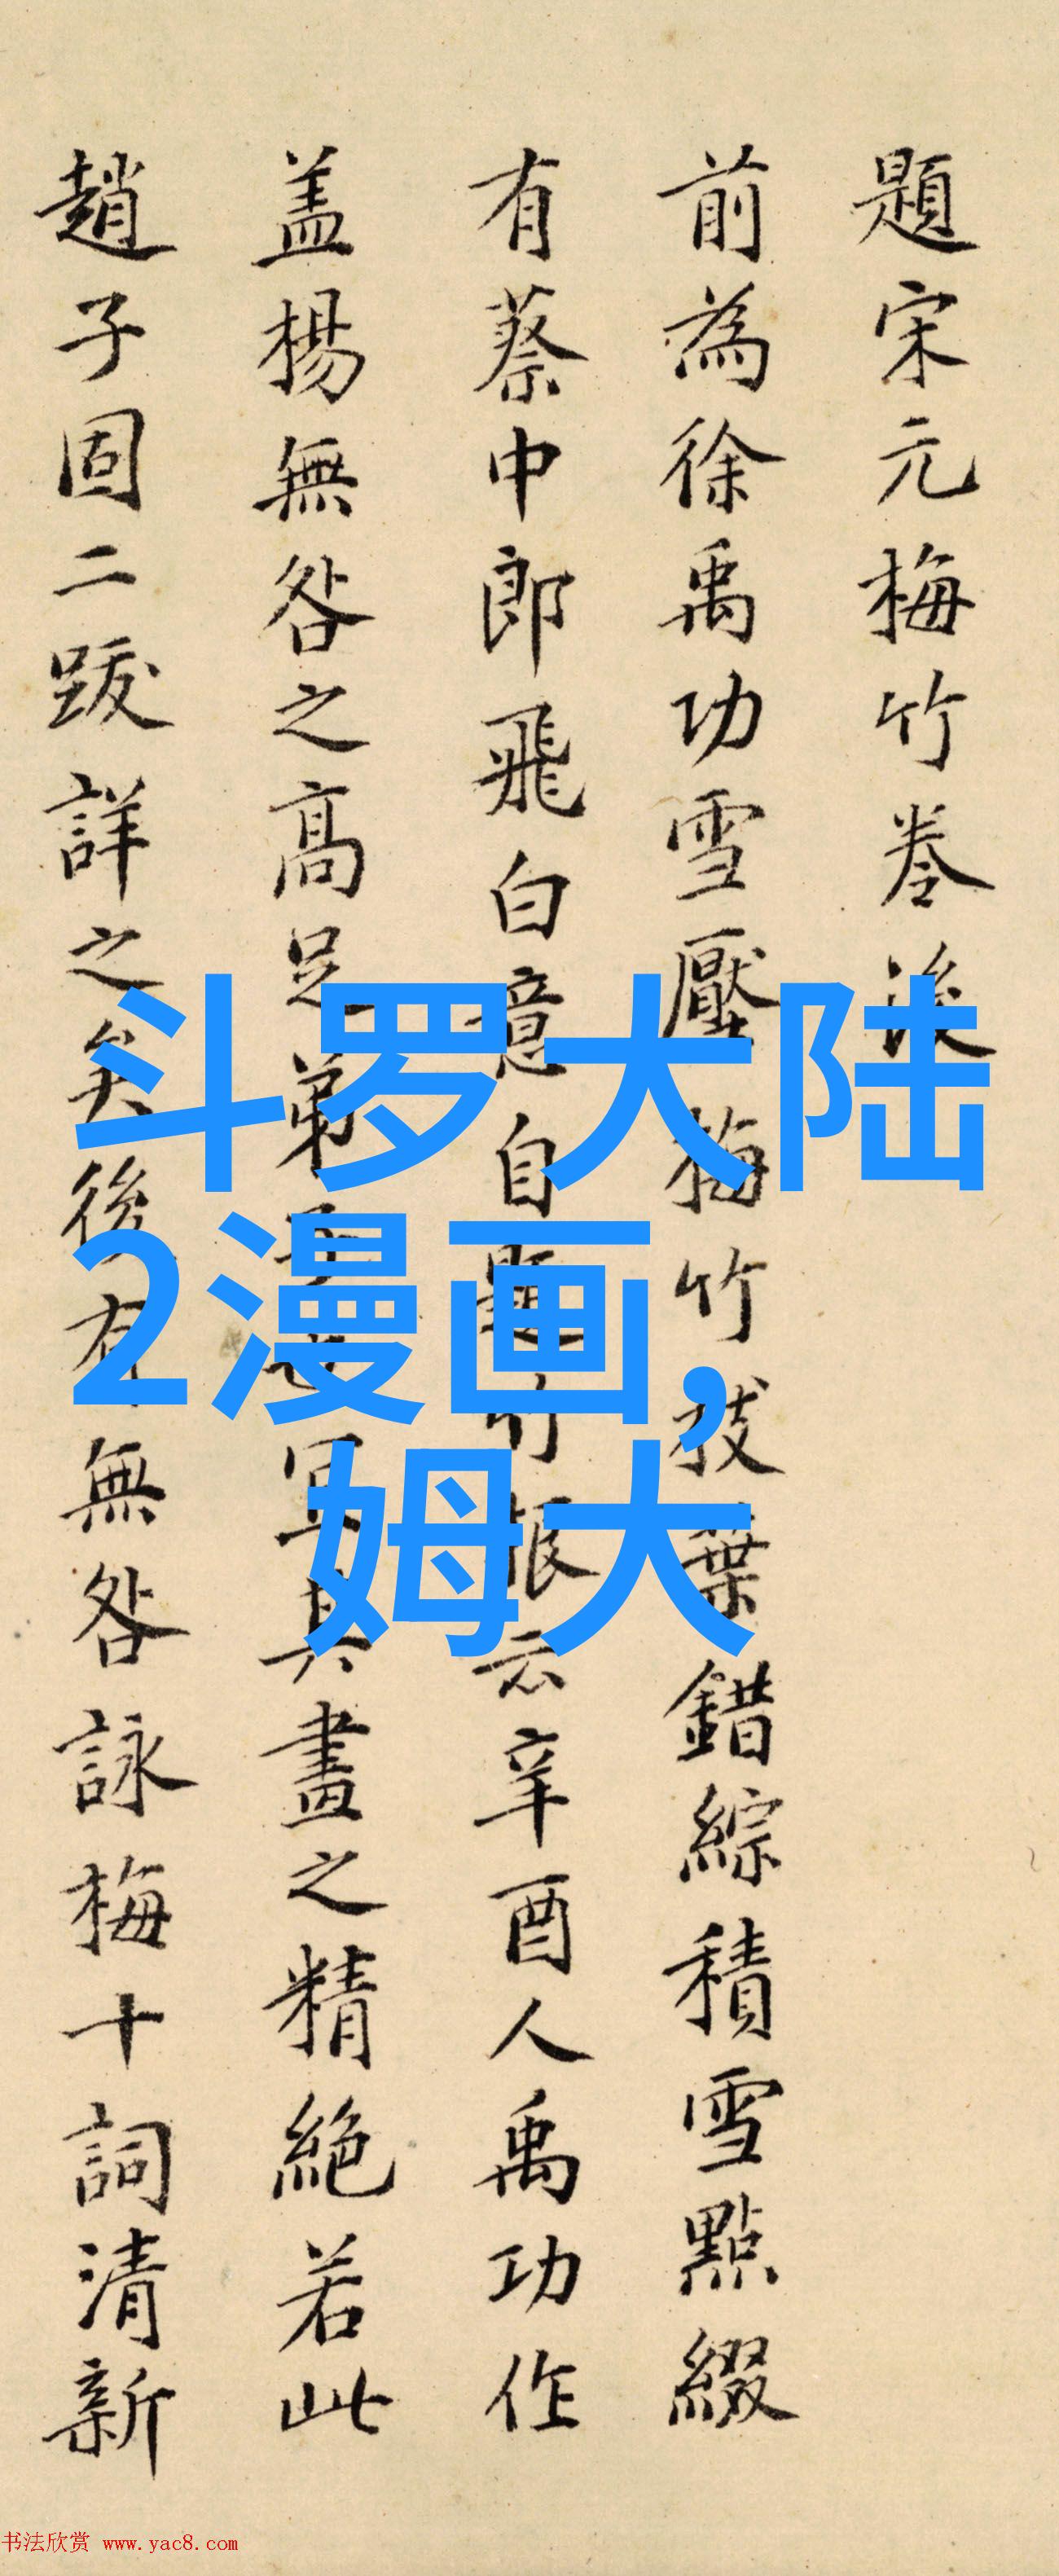 題宋元梅竹卷後
前為徐禹功雪壓梅竹枝葉錯綜積雪點綴
有蔡中郎飛白意自題竹根云辛酉人禹功作
盖楊無咎之高足弟子也冝其畫之精絶若此
趙子固二跋詳之矣後有無咎詠梅十詞清新
斗罗大陆
2漫画,
姆大
书法欣赏 www.yac8.com